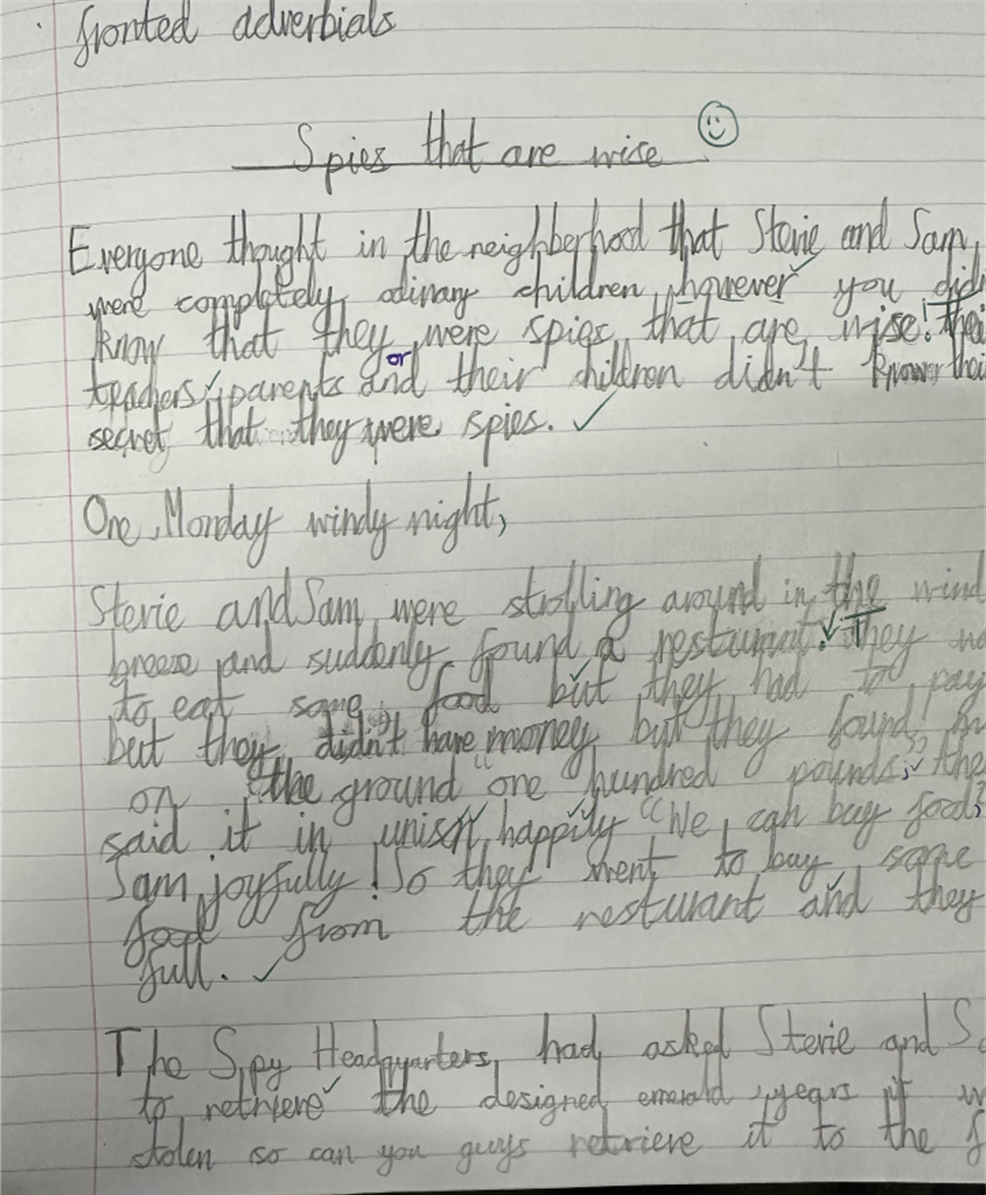 fronted adverbials
Spies that are wise
Everyone thought in the neighberhood that Stevie and Sam,
were completely odinary children, however you didn
know that they were spies that are wise! Thei
teachers, parents and or their children didn't know thei
secret that they were spies.
One Monday windy night,
Stevie and Sam were strolling around in the wind
breeze and suddenly found a resturant. They wa
to eat some food but they had to pay
but they didn't have money but they found
on the ground "one hundred pounds" the
said it in unison happily "We can buy food"
Sam joyfully! So they went to buy some
food from the resturant and they
full.
The Spy Headquarters had asked Stevie and S
to retrieve the designed emerald years it w
stolen so can you guys retrieve it to the f